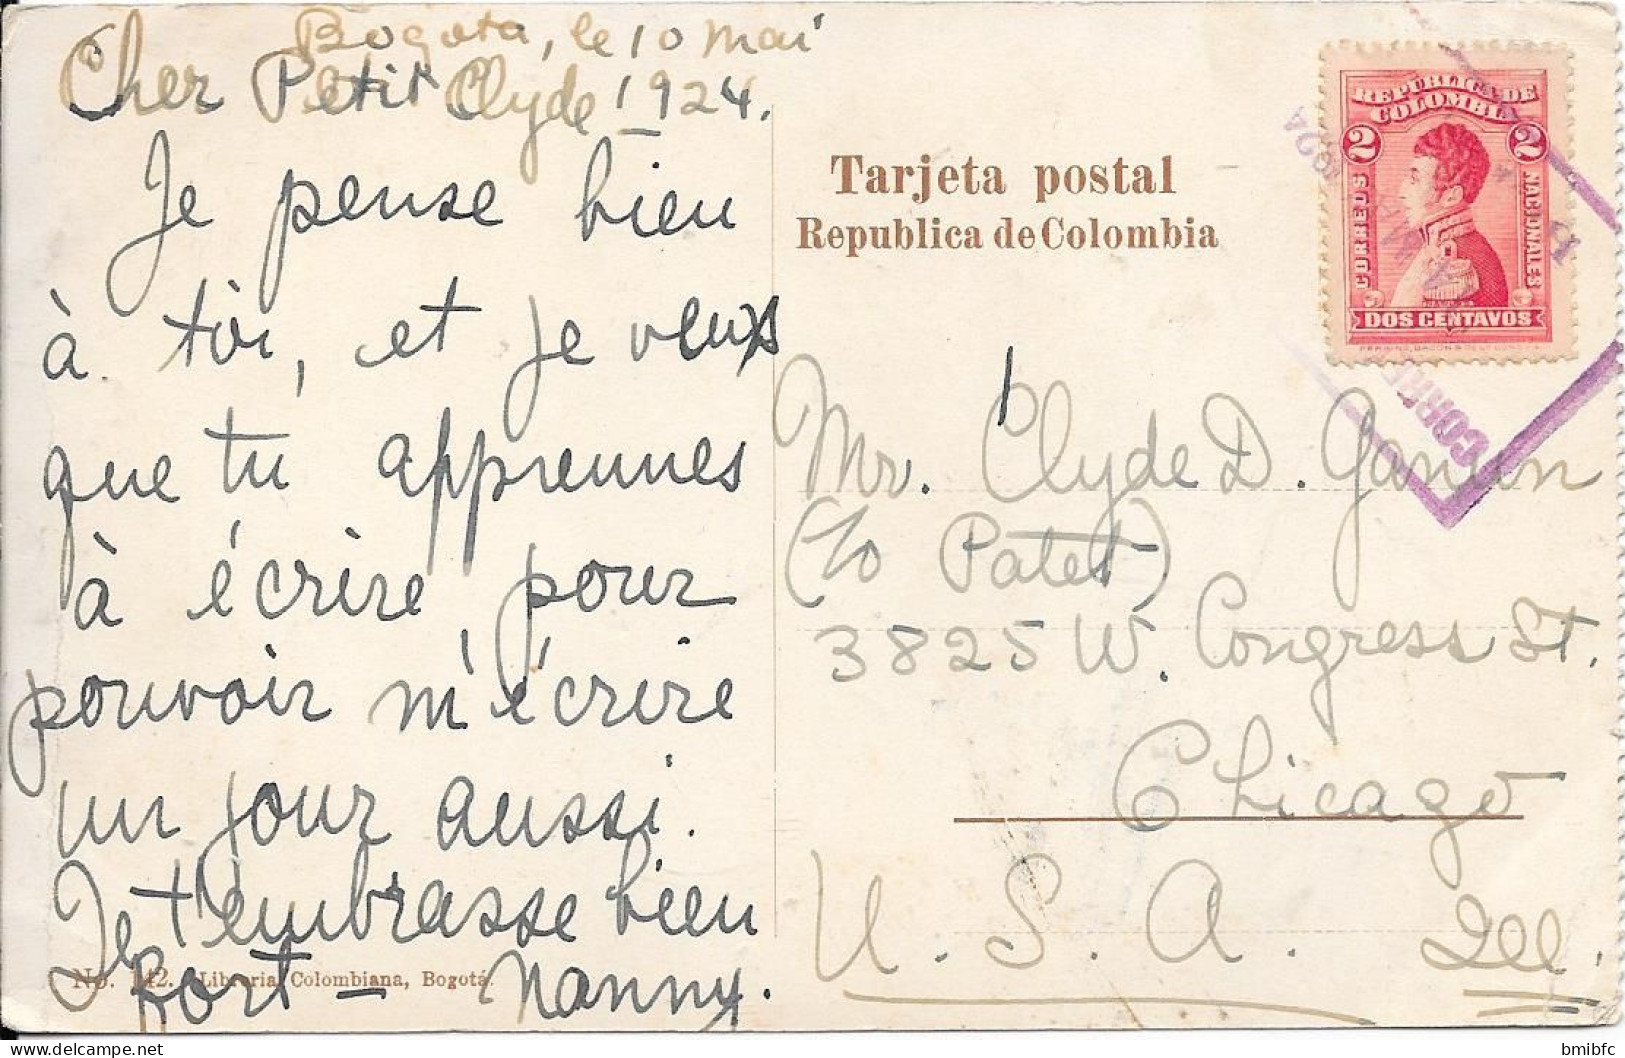 Bogota, le 10 mai
Cher Petit Clyde 1924.
Je pense bien
à toi, et je veux
que tu apprennes
à écrire, pour
pouvoir m'écrire
un jour aussi.
Je t'embrasse bien
fort - Nanny.
No. 142. Libreria Colombiana, Bogotá.
Tarjeta postal
Republica de Colombia
REPÚBLICA DE
COLOMBIA
2 2
CORREOS NACIONALES
DOS CENTAVOS
Mr. Clyde D.
(c/o Patet)
3825 W. Congress St.
Chicago
U. S. A. Ill.
bmibfc